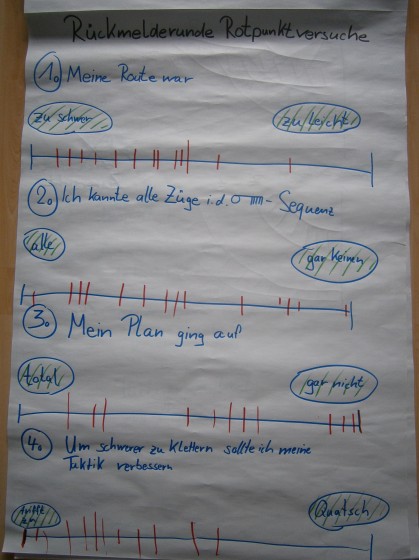 Rückmelderunde Rotpunktversuche
1. Meine Route war
zu schwer
zu leicht
2. Ich kannte alle Züge i.d. Sequenz
alle
gar keinen
3. Mein Plan ging auf
total
gar nicht
4. Um schwerer zu klettern sollte ich meine
Taktik verbessern
trifft zu
Quatsch